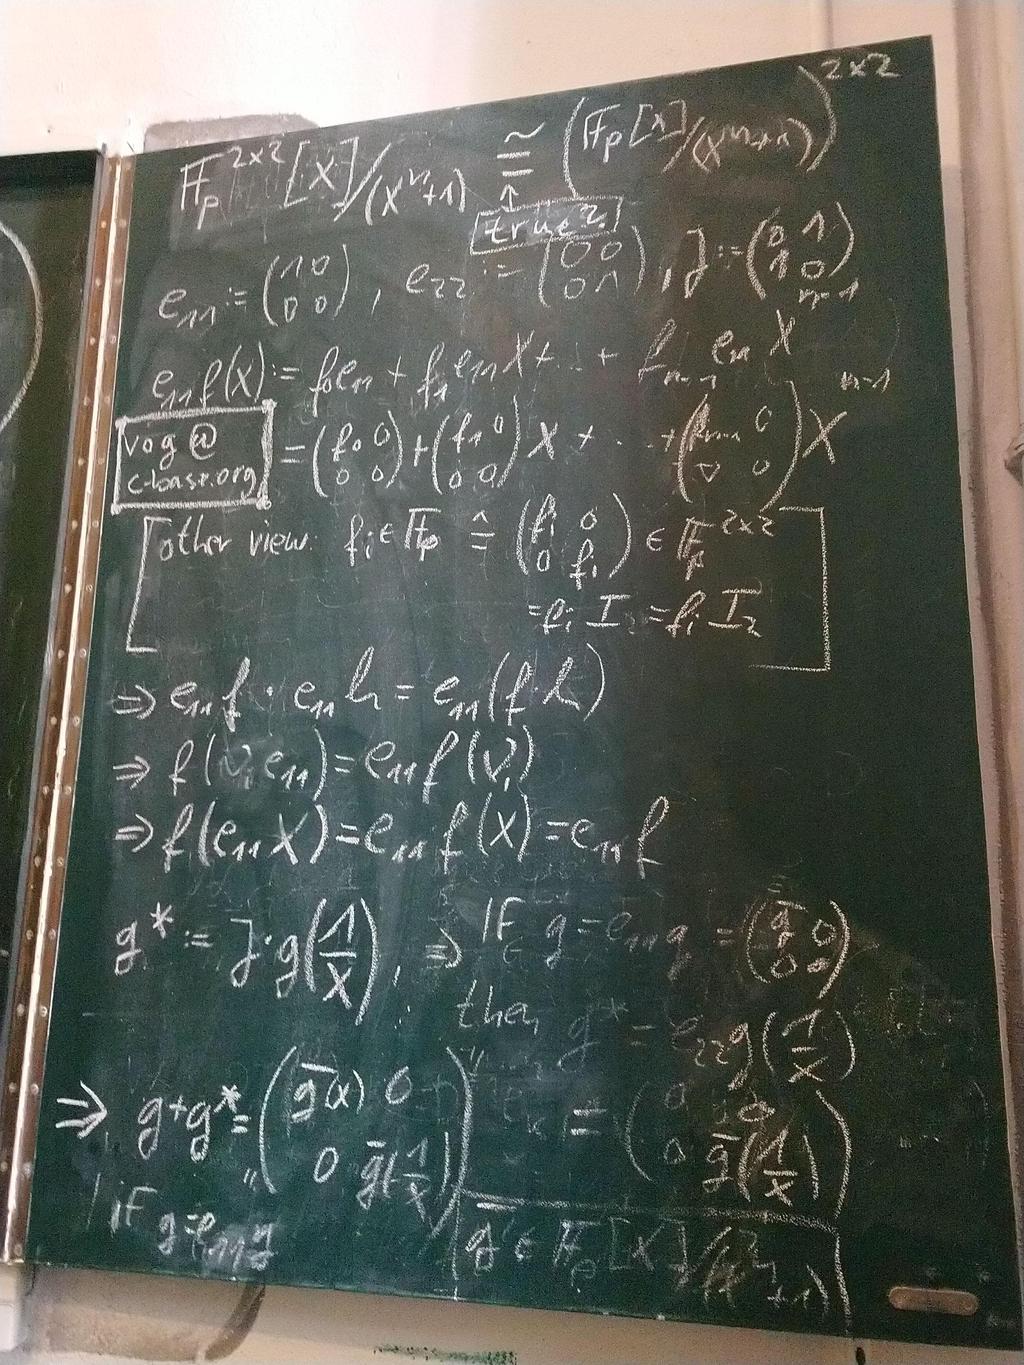 𝔽ₚ²ˣ²[X]/(Xⁿ+1) ≅ (𝔽ₚ[X]/(Xⁿ+1))²ˣ²
↑
true?
e₁₁ := (1 0 / 0 0), e₂₂ := (0 0 / 0 1), J := (0 1 / 1 0)
e₁₁f(X) := f₀e₁₁ + f₁e₁₁X + ... + fₙ₋₁e₁₁Xⁿ⁻¹
= (f₀ 0 / 0 0) + (f₁ 0 / 0 0) X + ... + (fₙ₋₁ 0 / 0 0) Xⁿ⁻¹
vog@
c-base.org
other view: fᵢ ∈ 𝔽ₚ ≙ (fᵢ 0 / 0 fᵢ) ∈ 𝔽ₚ²ˣ²
= fᵢ I₂ = fᵢ I₂
⇒ e₁₁f · e₁₁h = e₁₁(f·h)
⇒ f(νᵢe₁₁) = e₁₁f(νᵢ)
⇒ f(e₁₁X) = e₁₁f(X) = e₁₁f
g* := J·g(1/X), ⇒ IF g = e₁₁g = (g̅ 0 / 0 0)
then g* = e₂₂g(1/X)
= (0 0 / 0 g̅(1/X))
⇒ g+g* = (g̅(X) 0 / 0 g̅(1/X))
IF g=e₁₁g
g̅ ∈ 𝔽ₚ[X]/(Xⁿ+1)